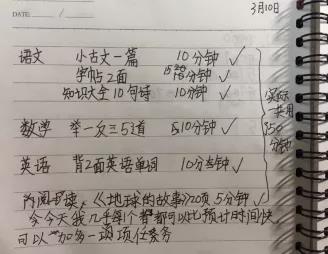 DATE: / /
3月10日
语文 小古文一篇 10分钟 ✓
字帖2面 15分钟 ✓
知识大全10句诗 10分钟 ✓
实际一共用350分钟
数学 举一反三5道 10分钟 ✓
英语 背2面英语单词 10分钟 ✓
阅读,《地球的故事》20页 5分钟 ✓
今天我几乎每个都可以比预计时间快
可以加多一项任务